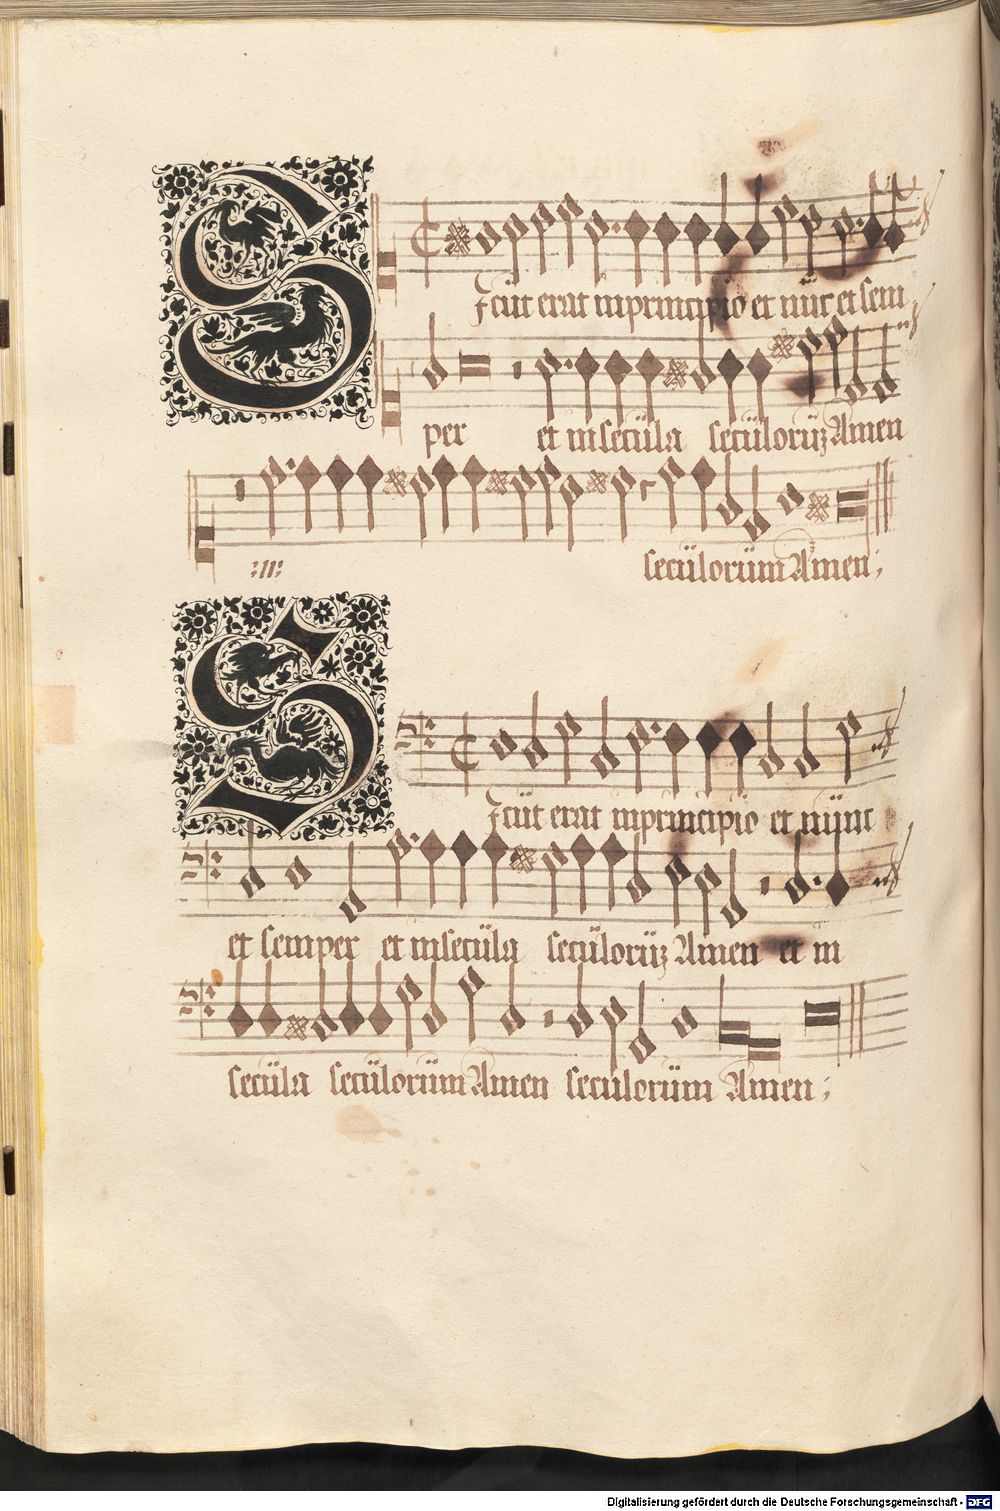 Sicut erat inprincipio et nūc et sem
per et insecula seculorūz Amen
:11: seculorum Amen;
Sicut erat inprincipio et nunc
et semper et insecula seculorūz Amen et in
secula seculorum Amen seculorum Amen;
Digitalisierung gefördert durch die Deutsche Forschungsgemeinschaft - DFG